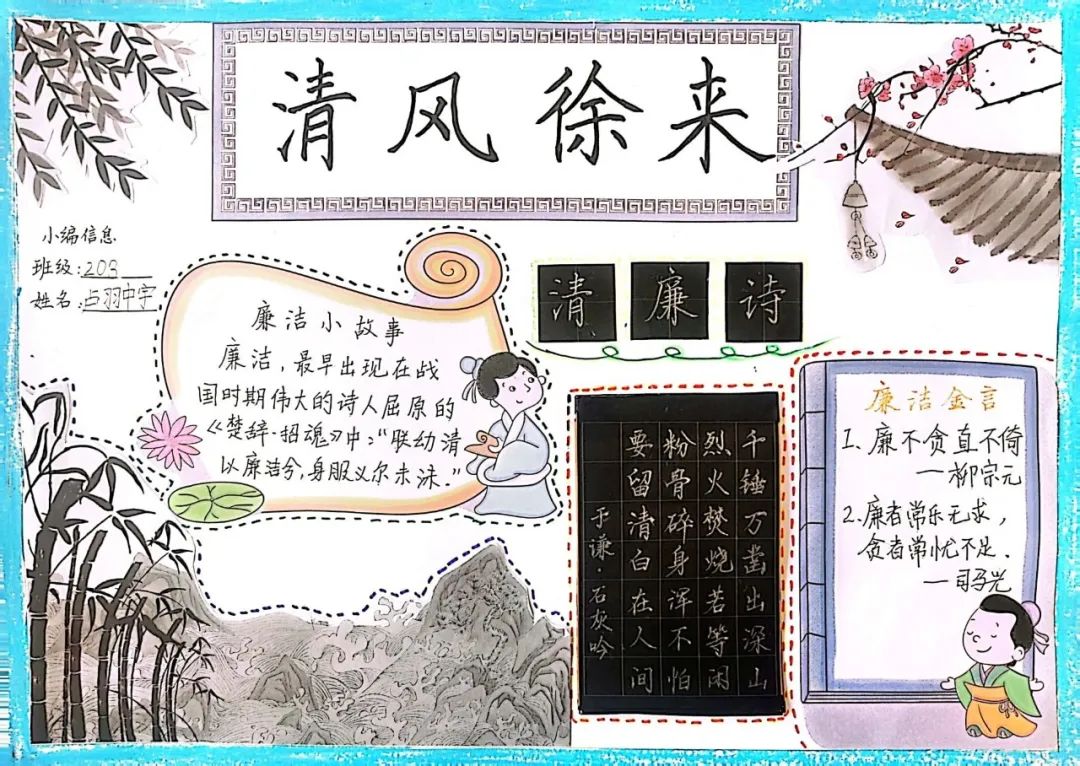 清风徐来
小编信息
班级:203
姓名:占羽中宇
廉洁小故事
廉洁,最早出现在战
国时期伟大的诗人屈原的
《楚辞·招魂》中:“联幼清
以廉洁兮,身服义尔未沬.”
清廉诗
千锤万凿出深山
烈火焚烧若等闲
粉骨碎身浑不怕
要留清白在人间
于谦·石灰吟
廉洁金言
1.廉不贪直不倚
—柳宗元
2.廉者常乐无求,
贪者常忧不足.
—司马光